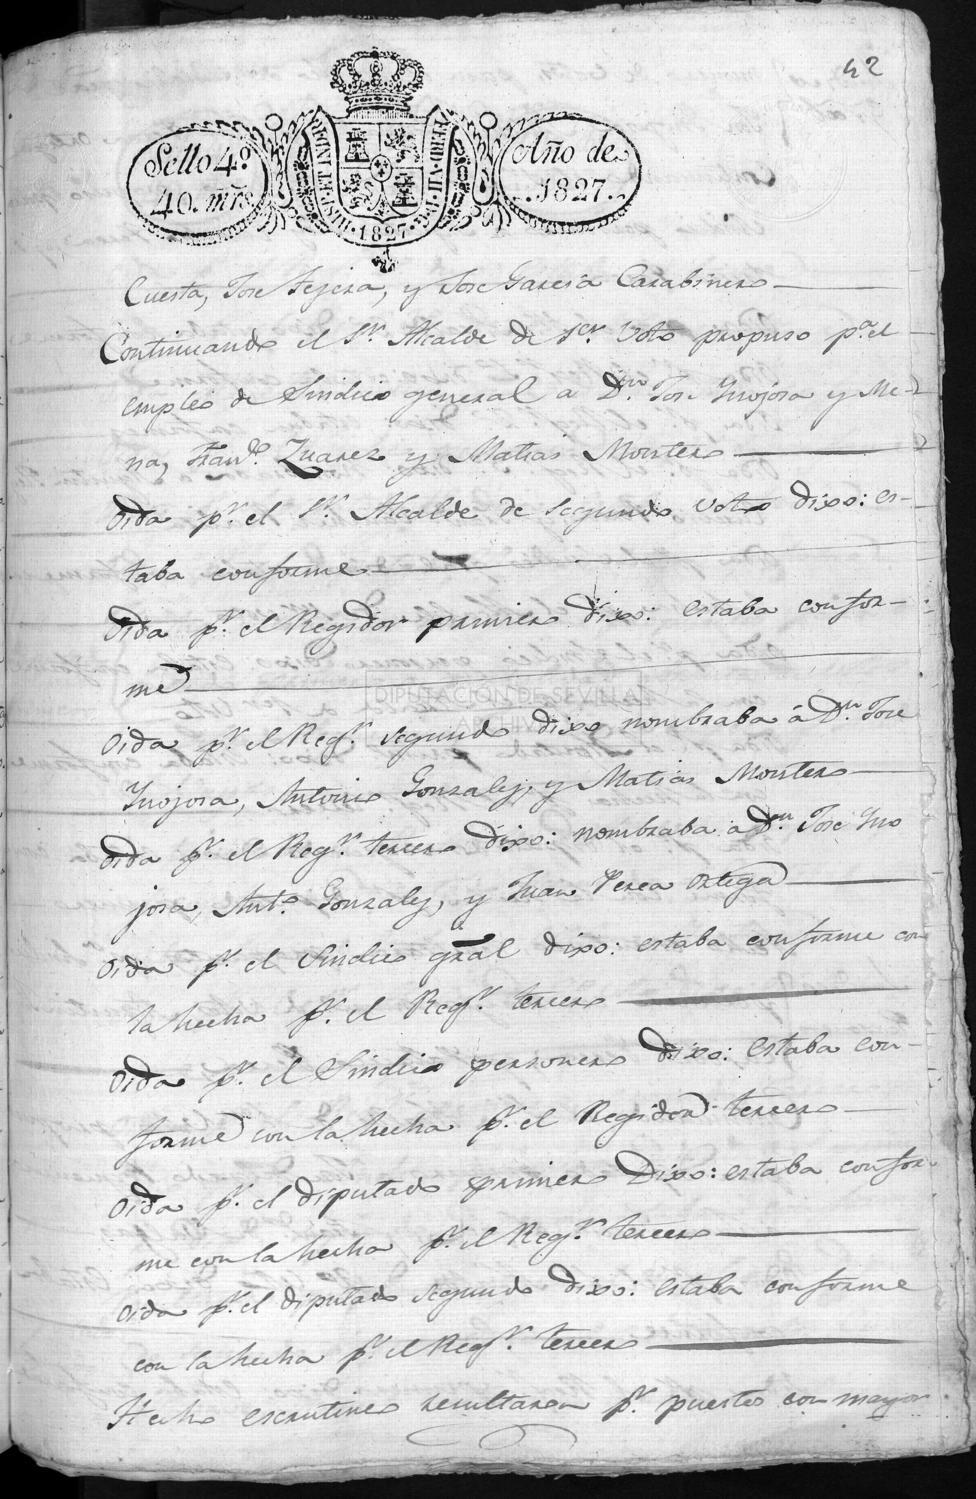 42
Sello 4.º
40. mrs.
HISP. ET IND. R. FERD. VII. D. G.
·1827·
Año de
1827.
Cuesta, Jose Tejera, y Jose Garcia Carabinero
Continuando el Sr. Alcalde de 1er. Voto propuso pa. el
empleo de Sindico general a Dn. Jose Ynojosa y Me-
na, Franco. Zuarez y Matias Montero
Oida pr. el Sr. Alcalde de segundo voto dixo: es-
taba conforme
Oida pr. el Regidor primero dixo: estaba confor-
me
DIPUTACIÓN DE SEVILLA
ARCHIVO
Oida pr. el Regr. segundo dixo nombraba á Dn. Jose
Ynojosa, Antonio Gonzalez, y Matias Montero
Oida pr. el Regr. tercero dixo: nombraba a Dn. Jose Yno
josa, Anto. Gonzalez, y Juan Perea Ortega
Oida pr. el Sindico gral dixo: estaba conforme con
la hecha pr. el Regr. tercero
Oida pr. el Sindico personero dixo: estaba con-
forme con la hecha pr. el Regidor tercero
Oida pr. el diputado primero Dixo: estaba confor-
me con la hecha pr. el Regr. tercero
Oida pr. el diputado segundo dixo: estaba conforme
con la hecha pr. el Regr. tercero
Hecho escrutinio resultaron pr. puestos con mayor